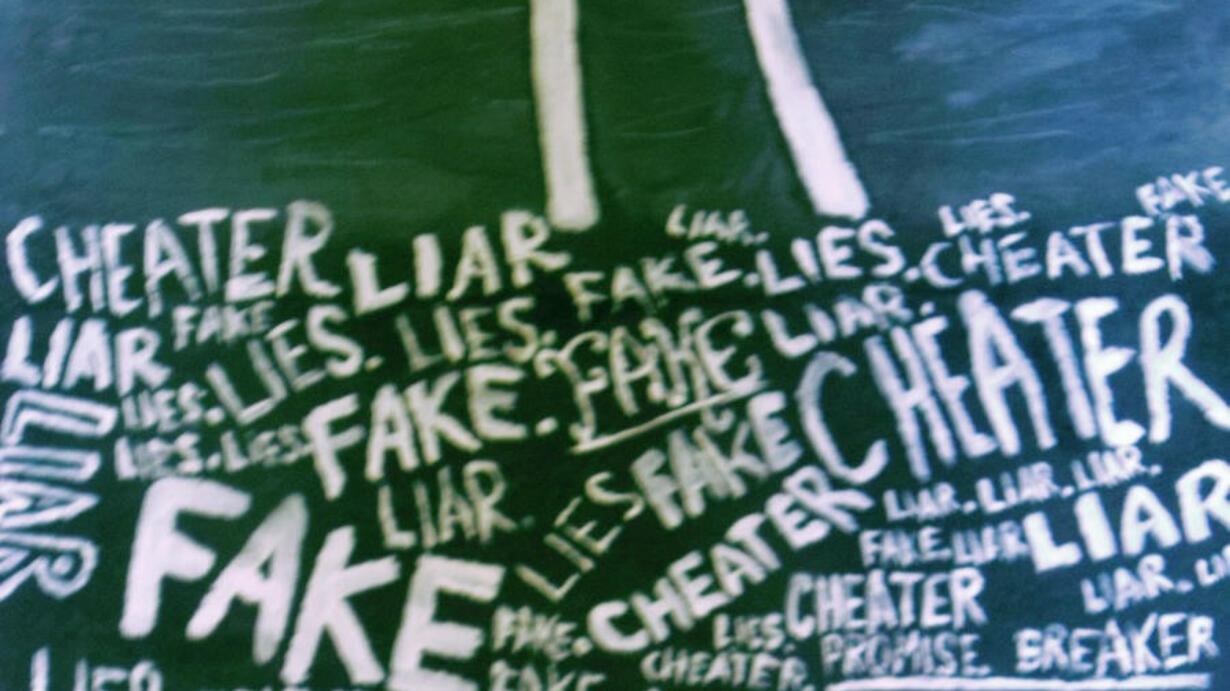 FAKE
LIAR. LIES.
CHEATER LIAR FAKE. LIES. CHEATER
LIAR FAKE LIES. LIES. FAKE LIAR. CHEATER
LIES.
LIES. LIES. FAKE.
LIAR LIAR. LIES FAKE LIAR. LIAR. LIAR.
FAKE CHEATER FAKE. LIAR LIAR
FAKE. LIES. CHEATER LIAR.
LIES CHEATER. PROMISE BREAKER